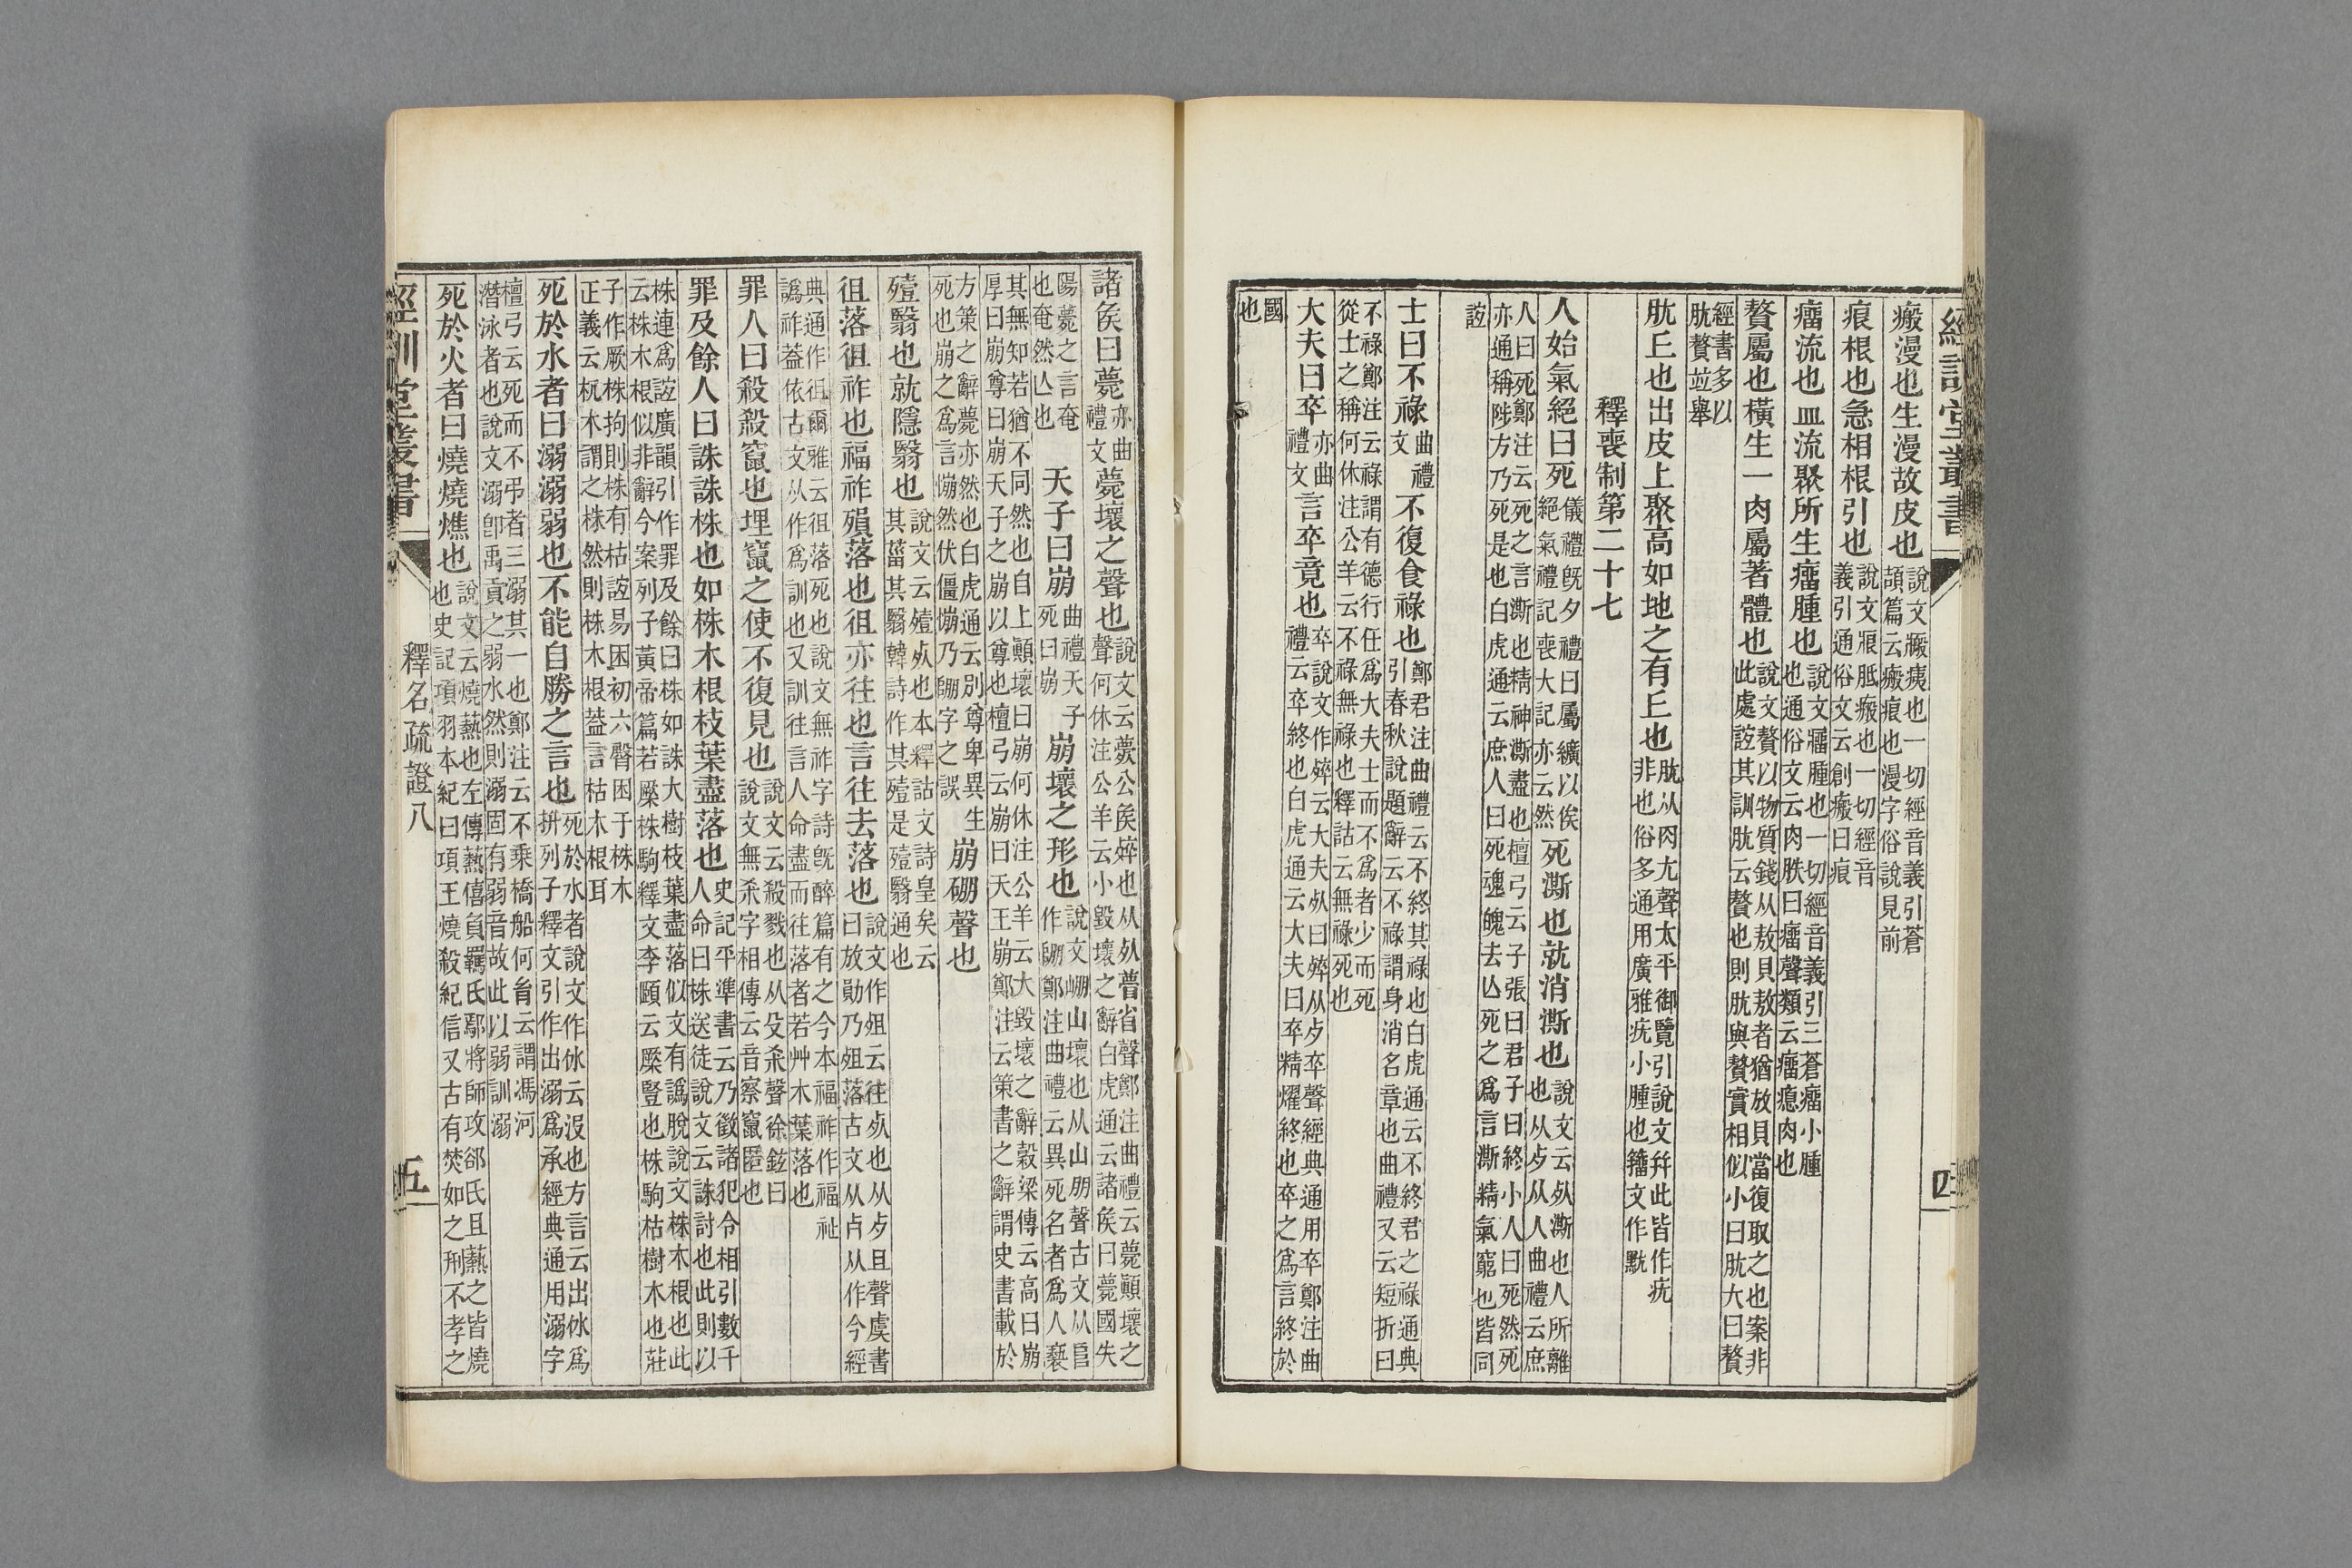 經訓堂叢書
四
瘢漫也生漫故皮也說文瘢痍也一切經音義引蒼
頡篇云瘢痕也漫字俗說見前
痕根也急相根引也說文痕胝瘢也一切經音
義引通俗文云創瘢曰痕
瘤流也血流聚所生瘤腫也說文瘤腫也一切經音義引三蒼瘤小腫
也通俗文云肉胅曰瘤聲類云瘤瘜肉也
贅屬也橫生一肉屬著體也說文贅以物質錢从敖貝敖者猶放貝當復取之也案非
此處誼其訓肬云贅也則肬與贅實相似小曰肬大曰贅
經書多以
肬贅並舉
肬丘也出皮上聚高如地之有丘也肬从肉尢聲太平御覽引說文幷此皆作疣
非也俗多通用廣雅疣小腫也籒文作黖
釋喪制第二十七
人始氣絕曰死儀禮旣夕禮曰屬纊以俟
絕氣禮記喪大記亦云然死澌也就消澌也說文云𣦸澌也人所離
也从歺从人曲禮云庶
人曰死鄭注云死之言澌也精神澌盡也檀弓云子張曰君子曰終小人曰死然死
亦通稱陟方乃死是也白虎通云庶人曰死魂魄去亾死之爲言澌精氣窮也皆同
誼
士曰不祿曲禮
文不復食祿也鄭君注曲禮云不終其祿也白虎通云不終君之祿通典
引春秋說題辭云不祿謂身消名章也曲禮又云短折曰
不祿鄭注云祿謂有德行任爲大夫士而不爲者少而死
從士之稱何休注公羊云不祿無祿也釋詁云無祿死也
大夫曰卒亦曲
禮文言卒竟也卒說文作𣨛云大夫𣦸曰𣨛从歺卒聲經典通用卒鄭注曲
禮云卒終也白虎通云大夫曰卒精燿終也卒之爲言終於
國
也
諸矦曰薨亦曲
禮文薨壞之聲也說文云薨公矦𣨛也从𣦸瞢省聲鄭注曲禮云薨顚壞之
聲何休注公羊云小毀壞之辭白虎通云諸矦曰薨國失
陽薨之言奄
也奄然亾也天子曰崩曲禮天子
死曰崩崩壞之形也說文崩山壞也从山朋聲古文从𨸏
作𨹹鄭注曲禮云異死名者爲人褻
其無知若猶不同然也自上顚壞曰崩何休注公羊云大毀壞之辭穀梁傳云高曰崩
厚曰崩尊曰崩天子之崩以尊也檀弓云崩曰天王崩鄭注云策書之辭謂史書載於
方策之辭薨亦然也白虎通云別尊卑異生
死也崩之爲言𢠵然伏僵𢠵乃𨹹字之誤崩硼聲也
殪翳也就隱翳也說文云殪𣦸也本釋詁文詩皇矣云
其菑其翳韓詩作其殪是殪翳通也
徂落徂祚也福祚殞落也徂亦往也言往去落也說文作殂云往𣦸也从歺且聲虞書
曰放勛乃殂落古文从歺从作今經
典通作徂爾雅云徂落死也說文無祚字詩旣醉篇有之今本福祚作福祉
譌祚葢依古文从作爲訓也又訓往言人命盡而往落者若艸木葉落也
罪人曰殺殺竄也埋竄之使不復見也說文云殺戮也从殳杀聲徐鉉曰
說文無杀字相傳云音察竄匿也
罪及餘人曰誅誅株也如株木根枝葉盡落也史記平準書云乃徵諸犯令相引數千
人命曰株送徒說文云誅討也此則以
株連爲誼廣韻引作罪及餘曰株如誅大樹枝葉盡落似文有譌脫說文株木根也此
云株木根似非辭今案列子黃帝篇若橜株駒釋文李頤云橜豎也株駒枯樹木也莊
子作厥株拘則株有枯誼易困初六臀困于株木
正義云杌木謂之株然則株木根葢言枯木根耳
死於水者曰溺溺弱也不能自勝之言也死於水者說文作㲻云沒也方言云出㲻爲
拼列子釋文引作出溺爲承經典通用溺字
檀弓云死而不弔者三溺其一也鄭注云不乘橋船何胤云謂馮河
潛泳者也說文溺卽禹貢之弱水然則溺固有弱音故此以弱訓溺
死於火者曰燒燒燋也說文云燒爇也左傳爇僖負羈氏鄢將師攻郤氏且爇之皆燒
也史記項羽本紀曰項王燒殺紀信又古有焚如之刑不孝之
經訓堂叢書
釋名疏證八
五